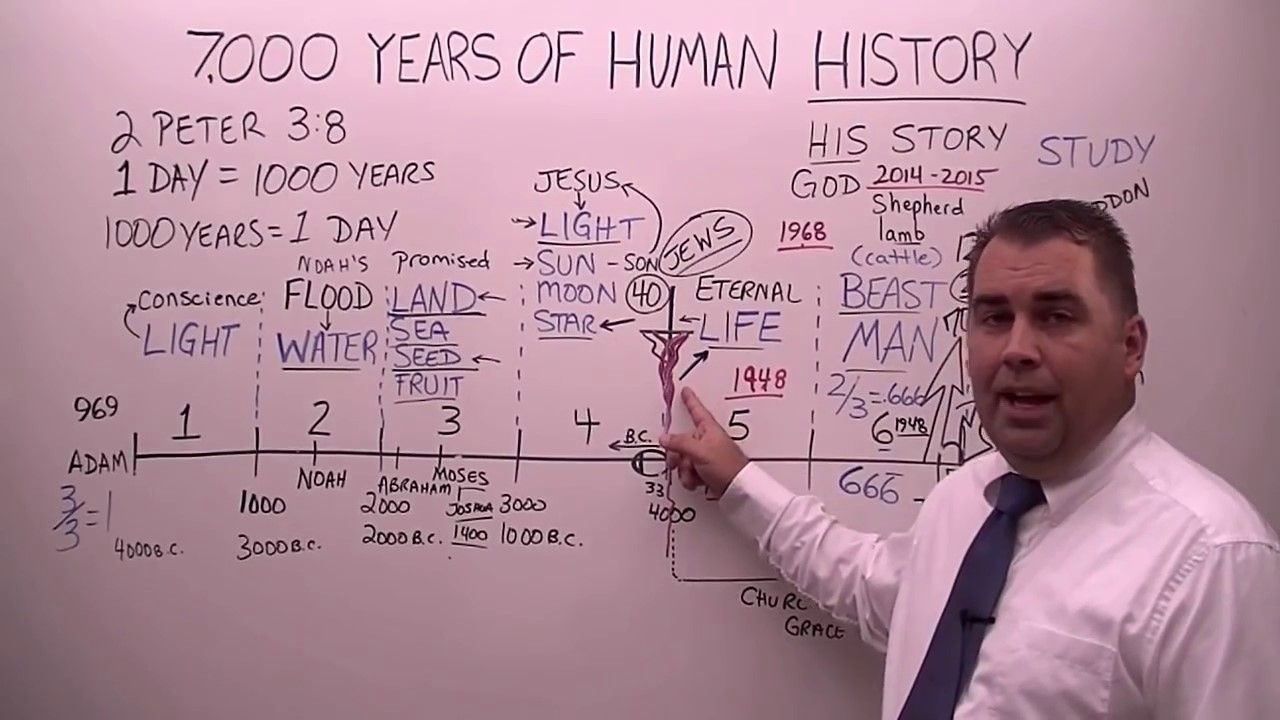 7,000 YEARS OF HUMAN HISTORY
2 PETER 3:8
1 DAY = 1000 YEARS
1000 YEARS = 1 DAY
HIS STORY
GOD 2014-2015
STUDY
Shepherd
lamb
(cattle)
1968
JESUS
LIGHT
SUN - SON
MOON 40
STAR
JEWS
ETERNAL
LIFE
1948
NOAH'S
FLOOD
WATER
promised
LAND
SEA
SEED
FRUIT
Conscience
LIGHT
BEAST
MAN
2/3 = .666
6 1948
666 -
969
1 2 3 4 5
B.C.
ADAM
NOAH
ABRAHAM
MOSES
JOSHUA
1400
33
3/3 = 1
1000 2000 3000 4000
4000 B.C. 3000 B.C. 2000 B.C. 1000 B.C.
GRACE